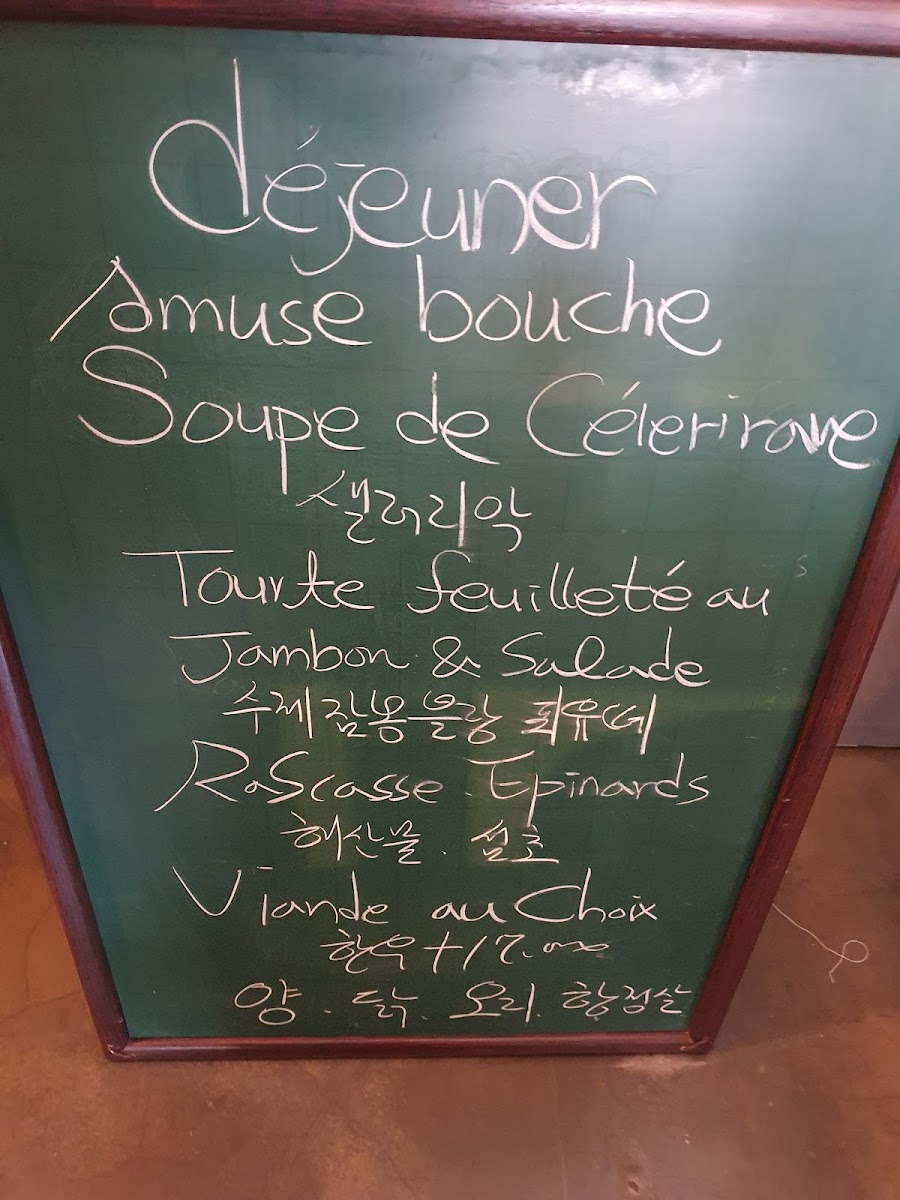 déjeuner
Amuse bouche
Soupe de Célerirave
샐러리악
Tourte feuilleté au
Jambon & Salade
수제잠봉블랑 푀유떼
Rascasse. Epinards
해산물. 섬초
Viande au Choix
한우 +17.000
양. 닭. 오리. 항정살